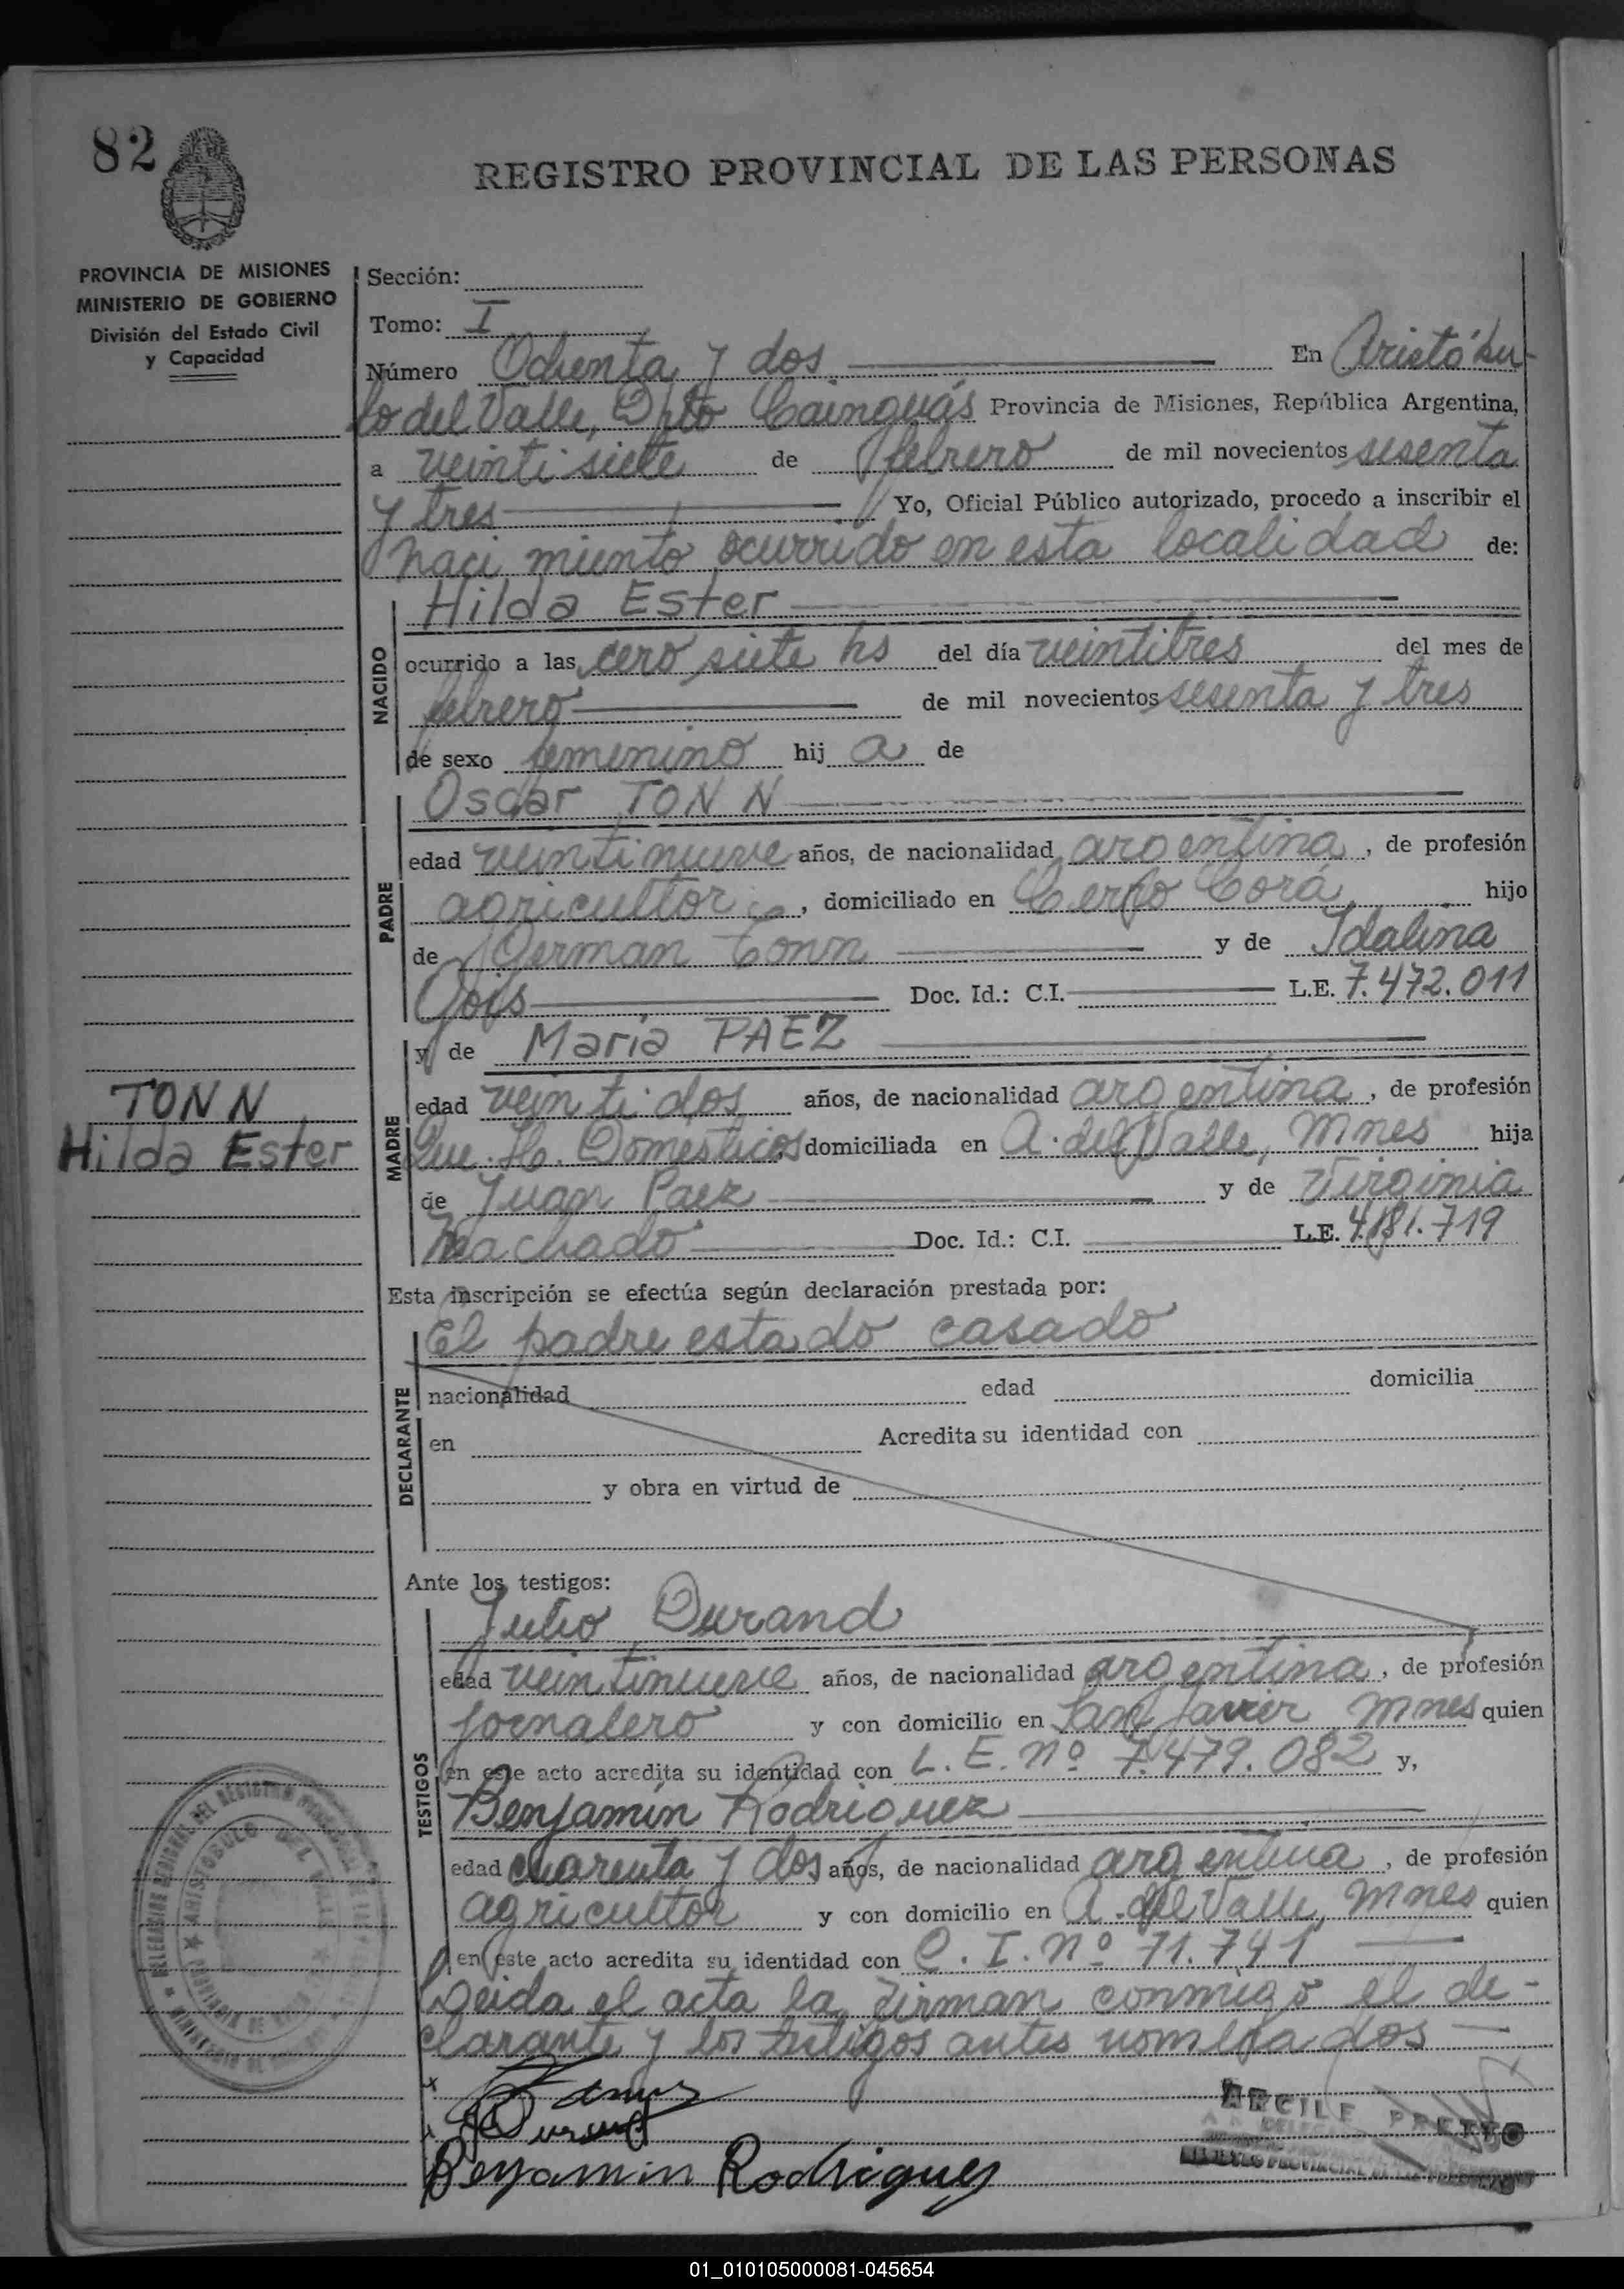 82
REGISTRO PROVINCIAL DE LAS PERSONAS
PROVINCIA DE MISIONES
MINISTERIO DE GOBIERNO
División del Estado Civil
y Capacidad
Sección:
Tomo: I
Número Ochenta y dos En Aristóbu-
lo del Valle, Dpto Cainguás Provincia de Misiones, República Argentina,
a veintisiete de febrero de mil novecientos sesenta
y tres Yo, Oficial Público autorizado, procedo a inscribir el
nacimiento ocurrido en esta localidad de:
NACIDO
Hilda Ester
ocurrido a las cero siete hs del día veintitres del mes de
febrero de mil novecientos sesenta y tres
de sexo femenino hij a de
PADRE
Oscar TONN
edad veintinueve años, de nacionalidad argentina, de profesión
agricultor, domiciliado en Cerro Corá hijo
de German Tonn y de Idalina
Gois Doc. Id.: C.I. L.E. 7.472.011
MADRE
y de Maria PAEZ
edad veintidos años, de nacionalidad argentina, de profesión
Que. H. Domesticos domiciliada en A. del Valle, Mnes hija
de Juan Paez y de Virginia
Machado Doc. Id.: C.I. L.E. 4.181.719
TONN
Hilda Ester
Esta inscripción se efectúa según declaración prestada por:
DECLARANTE
El padre estado casado
nacionalidad edad domicilia
en Acredita su identidad con
y obra en virtud de
Ante los testigos:
TESTIGOS
Julio Durand
edad veintinueve años, de nacionalidad argentina, de profesión
jornalero y con domicilio en San Javier Mnes quien
en este acto acredita su identidad con L.E. nº 7.479.082 y,
Benjamin Rodriguez
edad cuarenta y dos años, de nacionalidad argentina, de profesión
agricultor y con domicilio en A. del Valle, Mnes quien
en este acto acredita su identidad con C.I. nº 71.741
Leida el acta la firman conmigo el de-
clarante y los testigos antes nombrados
Durand
Benjamin Rodriguez
ARCILE PRETTO
REGISTRO PROVINCIAL DE LAS PERSONAS
ARISTOBULO DEL VALLE
01_010105000081-045654